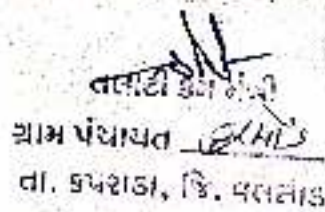 તલાટી કમ મંત્રી
ગ્રામ પંચાયત
તા. કપરાડા, જિ. વલસાડ